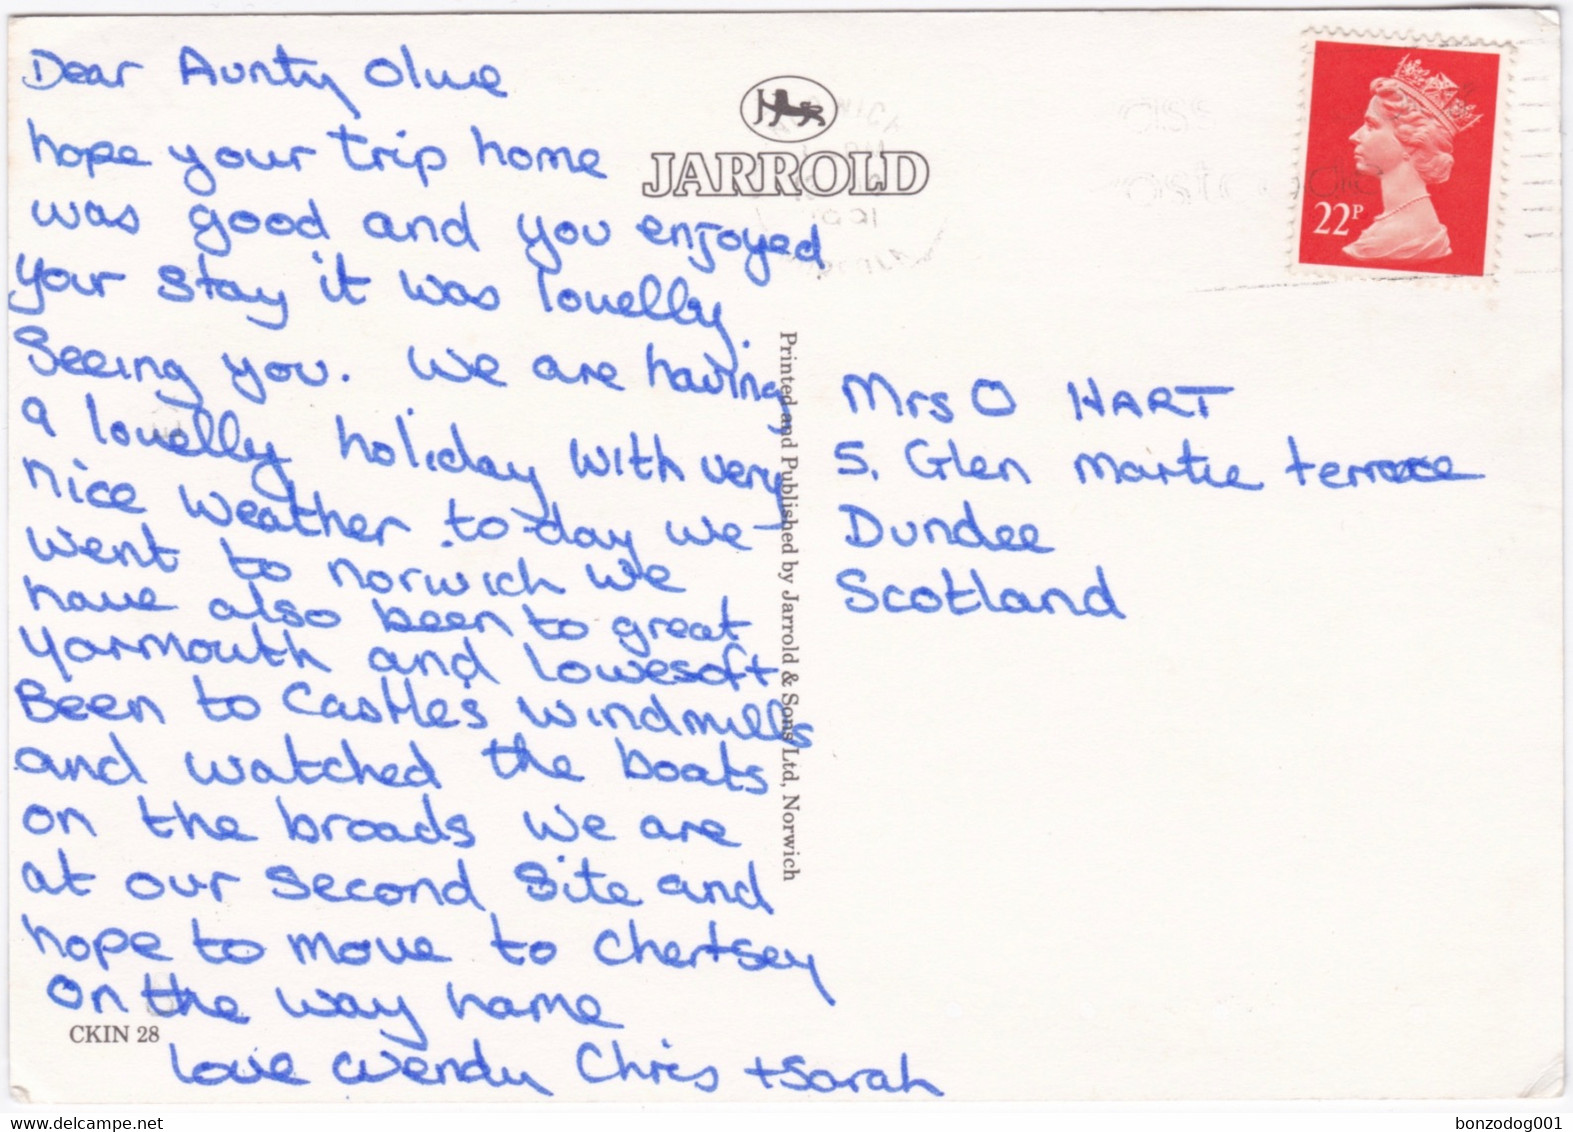 Dear Aunty Olive
hope your trip home
was good and you enjoyed
your stay it was lovelly
Seeing you. We are having
a lovelly holiday with very
nice weather to-day we
went to norwich we
have also been to great
yarmouth and Lowesoft
Been to Castles windmills
and watched the boats
on the broads we are
at our second site and
hope to move to Chertsey
on the way home
love Wendy Chris + Sarah
CKIN 28
JARROLD
Printed and Published by Jarrold & Sons Ltd, Norwich
22P
Mrs O HART
5. Glen Martie terrace
Dundee
Scotland
delcampe.net
bonzodog001